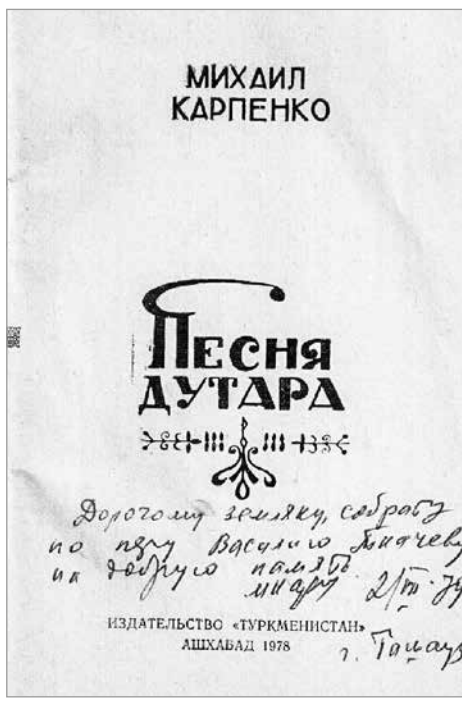 МИХАИЛ
КАРПЕНКО
ПЕСНЯ
ДУТАРА
Дорогому земляку, собрату
по перу Василию Ткачеву
на добрую память.
2/III-79
ИЗДАТЕЛЬСТВО «ТУРКМЕНИСТАН»
АШХАБАД 1978
г. Ташауз